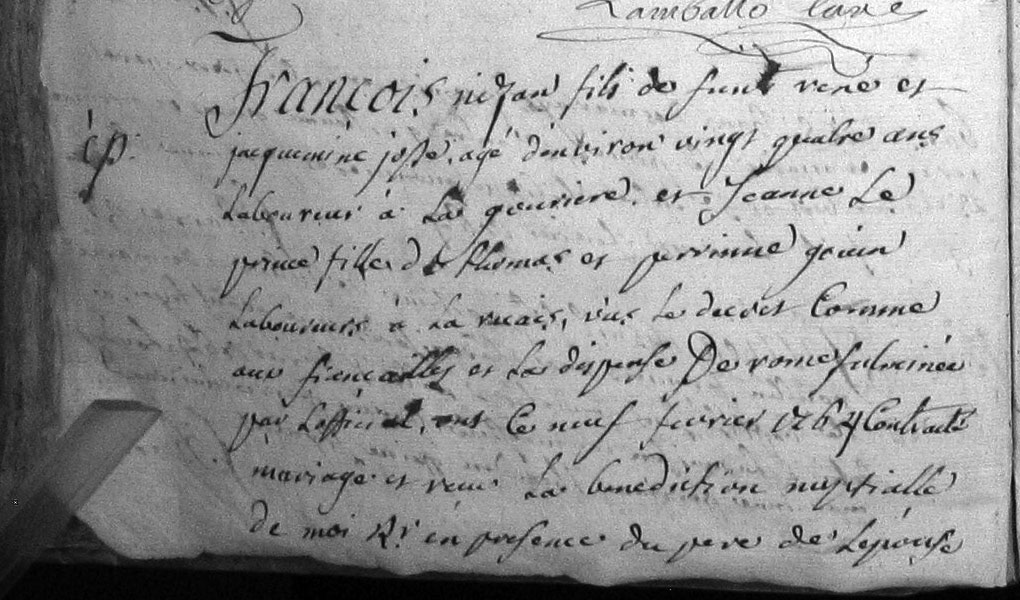 Lamballo
François fils de funt rené et
ép.
jacquemine josse, agé denviron vingt quatre ans
laboureur à la gouriere. et Jeanne Le
prince fille de thomas et perrinne
laboureurs à la ruais, vus le decret Comme
aux fiencailles et la dispense De rome fulminée
par Lofficial, ont Ce neuf fevrier 1764 Contracté
mariage et recu la benediction nuptialle
de moi Rr en presence du pere de Lepouse